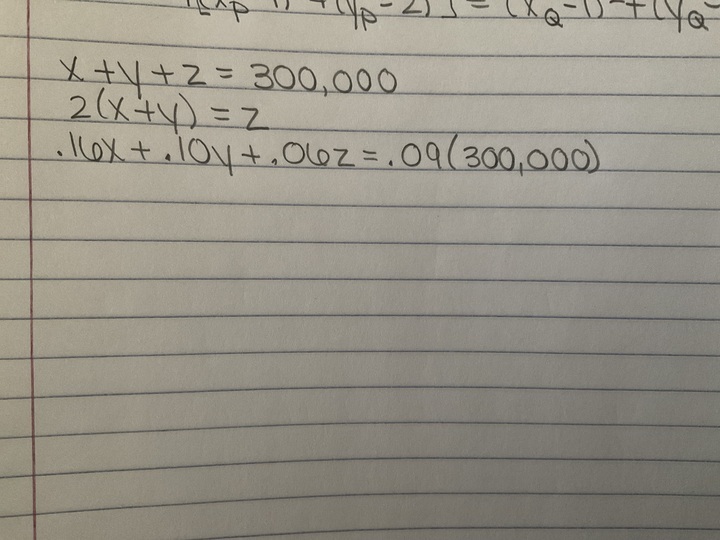 (y_P-2)] = (x_Q-1)²+(y_Q-
x+y+z = 300,000
2(x+y) = z
.16x + .10y + .06z = .09(300,000)